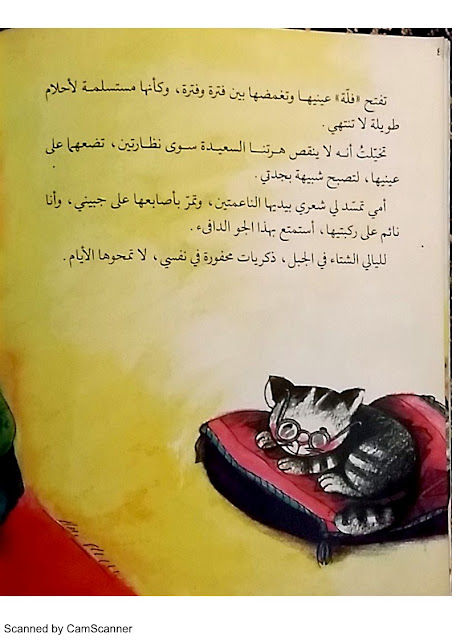 ٤
تفتح «فلّة» عينيها وتغمضها بين فترة وفترة، وكأنها مستسلمة لأحلام
طويلة لا تنتهي.
تخيّلتُ أنه لا ينقص هرتنا السعيدة سوى نظارتين، تضعهما على
عينيها، لتصبح شبيهة بجدتي.
أمي تمسّد لي شعري بيديها الناعمتين، وتمرّ بأصابعها على جبيني، وأنا
نائم على ركبتيها، أستمتع بهذا الجو الدافىء.
لليالي الشتاء في الجبل، ذكريات محفورة في نفسي، لا تمحوها الأيام.
Scanned by CamScanner